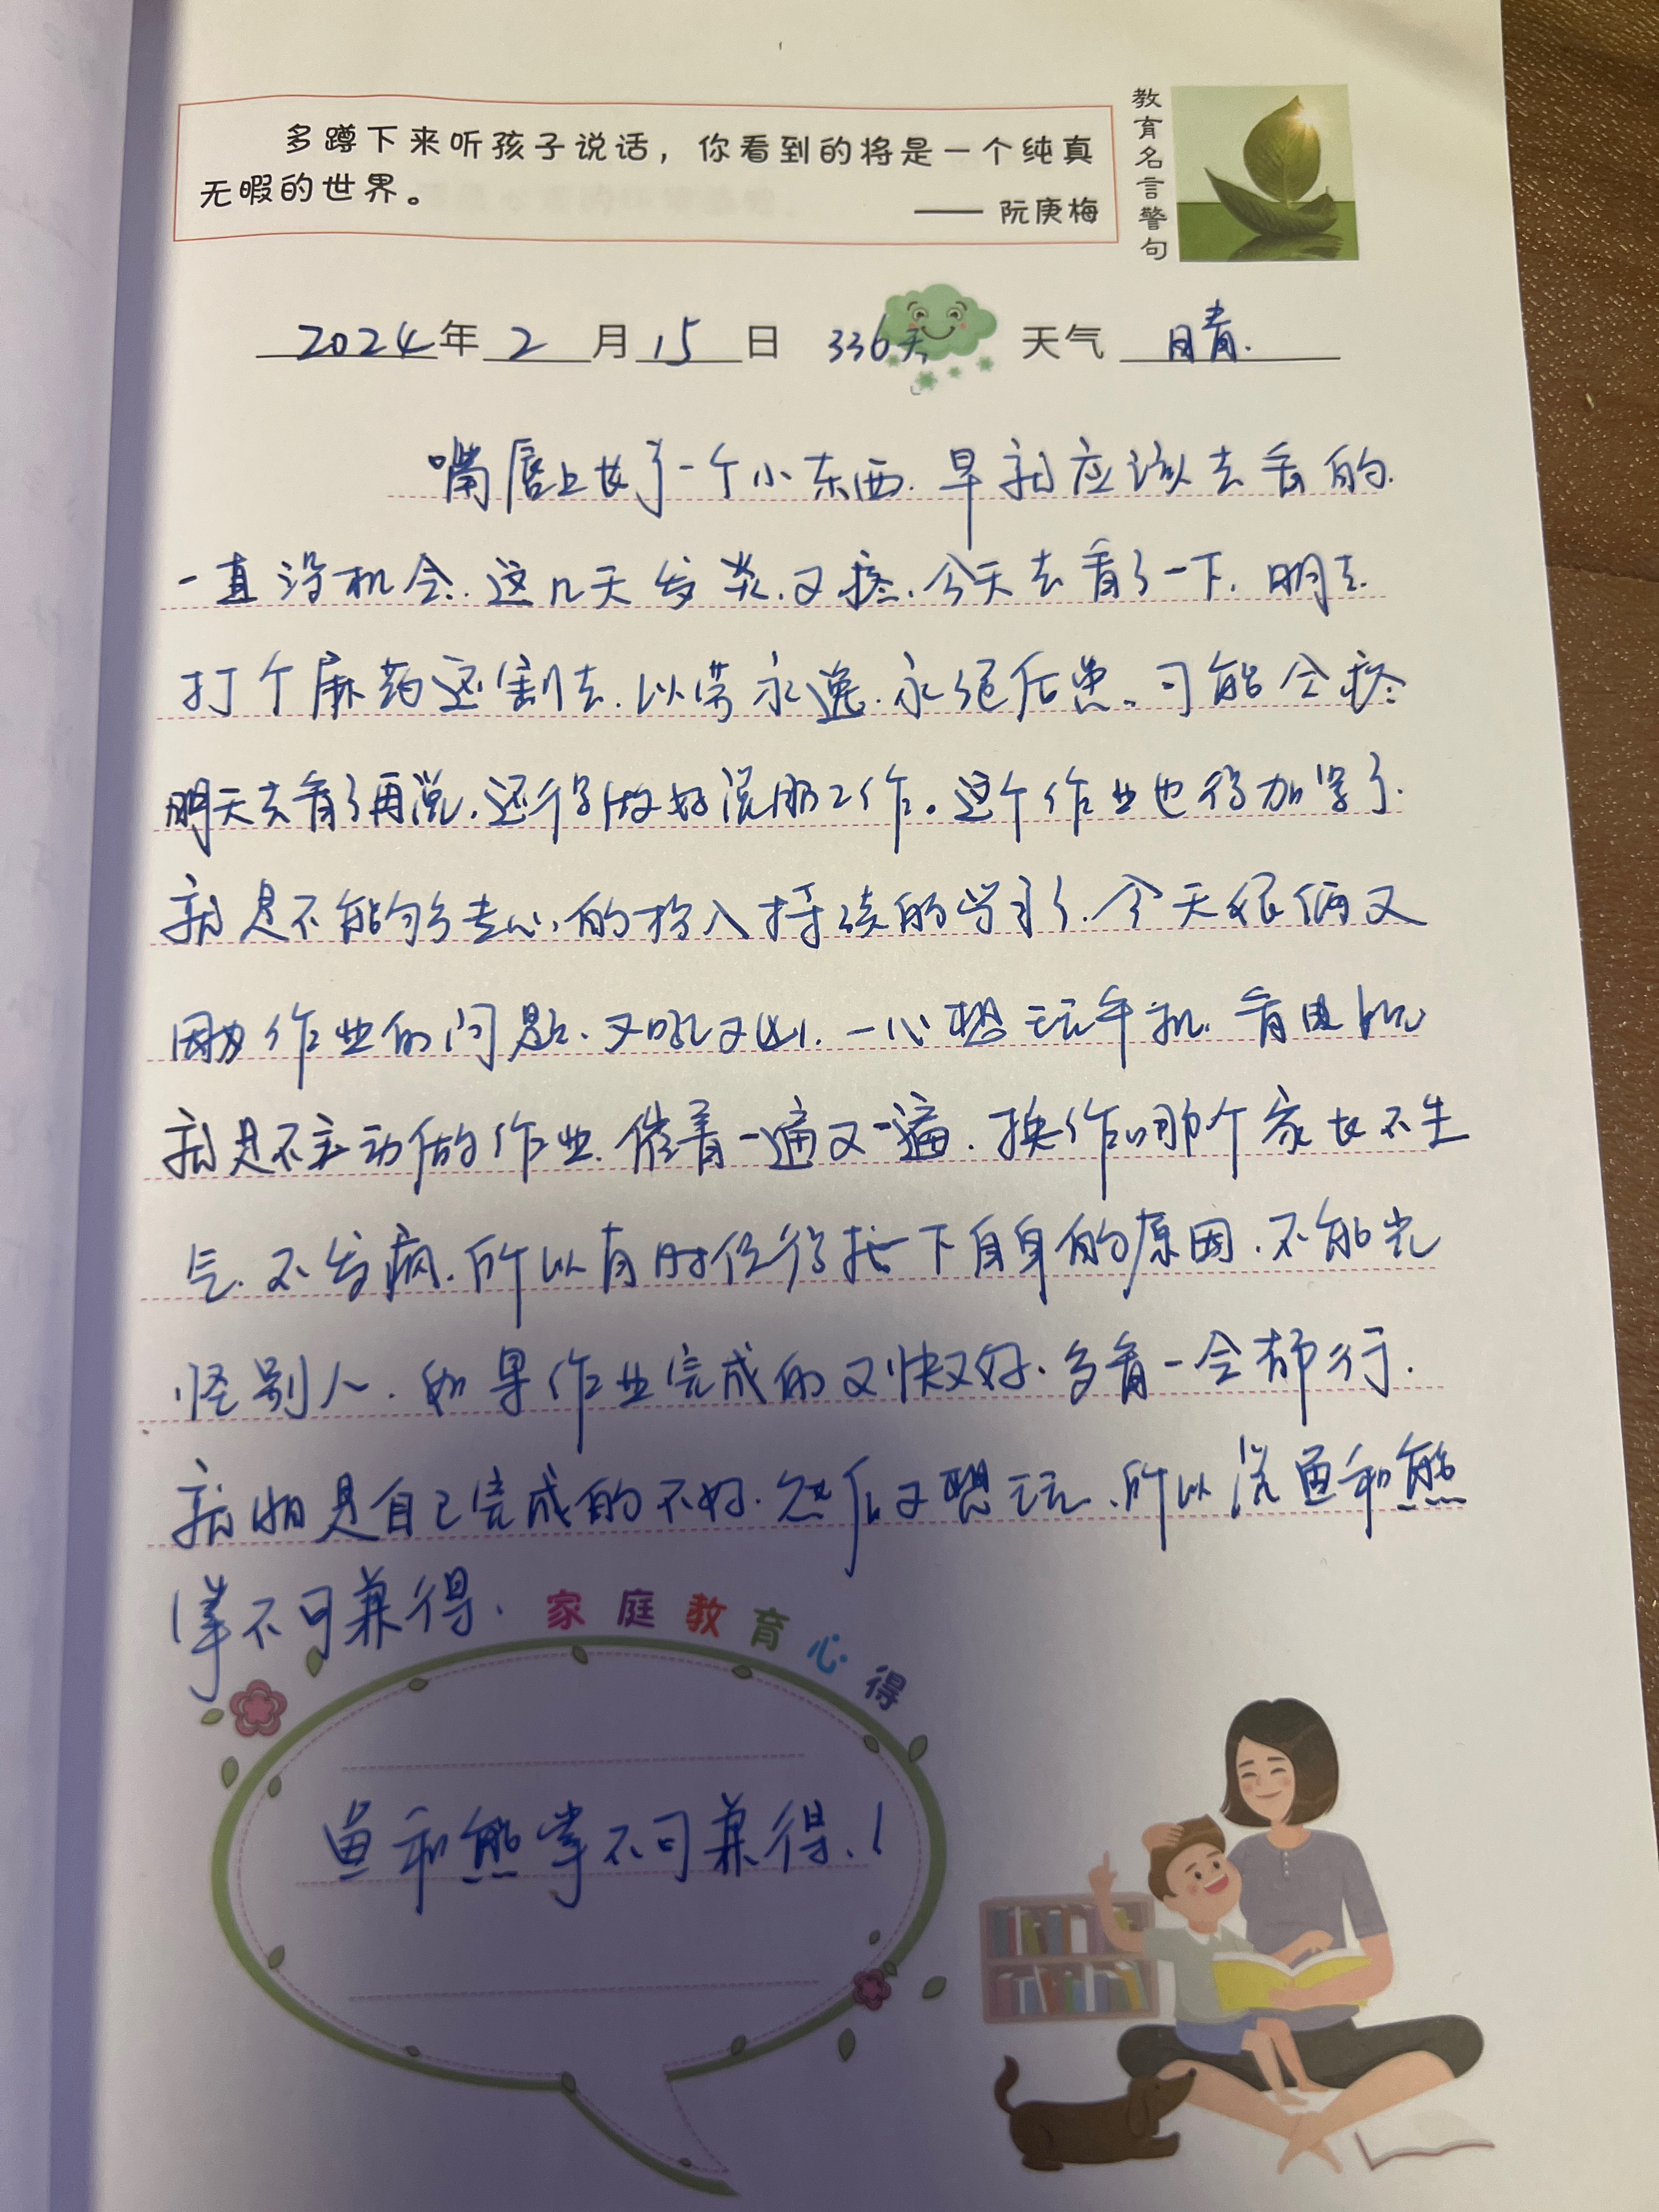 多蹲下来听孩子说话，你看到的将是一个纯真
无暇的世界。
—— 阮庚梅
教育名言警句
2024年2月15日 336天 天气 晴.
嘴唇上长了一个小东西.早就应该去看的.
一直没机会.这几天发炎.又疼.今天去看了一下.明天
打个麻药还割去.以劳永逸.永绝后患。可能会疼
明天去看了再说.还得做好说服工作。这个作业也得加紧了.
就是不能够专心的投入持续的学习了.今天很俩又
因为作业的问题.又吼又凶.一心想玩手机.看电视
就是不主动做作业.催着一遍又一遍.换作哪个家长不生
气.不发病.所以有时候得找一下自身的原因.不能光
怪别人.如果作业完成的又快又好.多看一会都行.
就怕是自己完成的不好.然后又想玩.所以说鱼和熊
掌不可兼得.
家庭教育心得
鱼和熊掌不可兼得.!